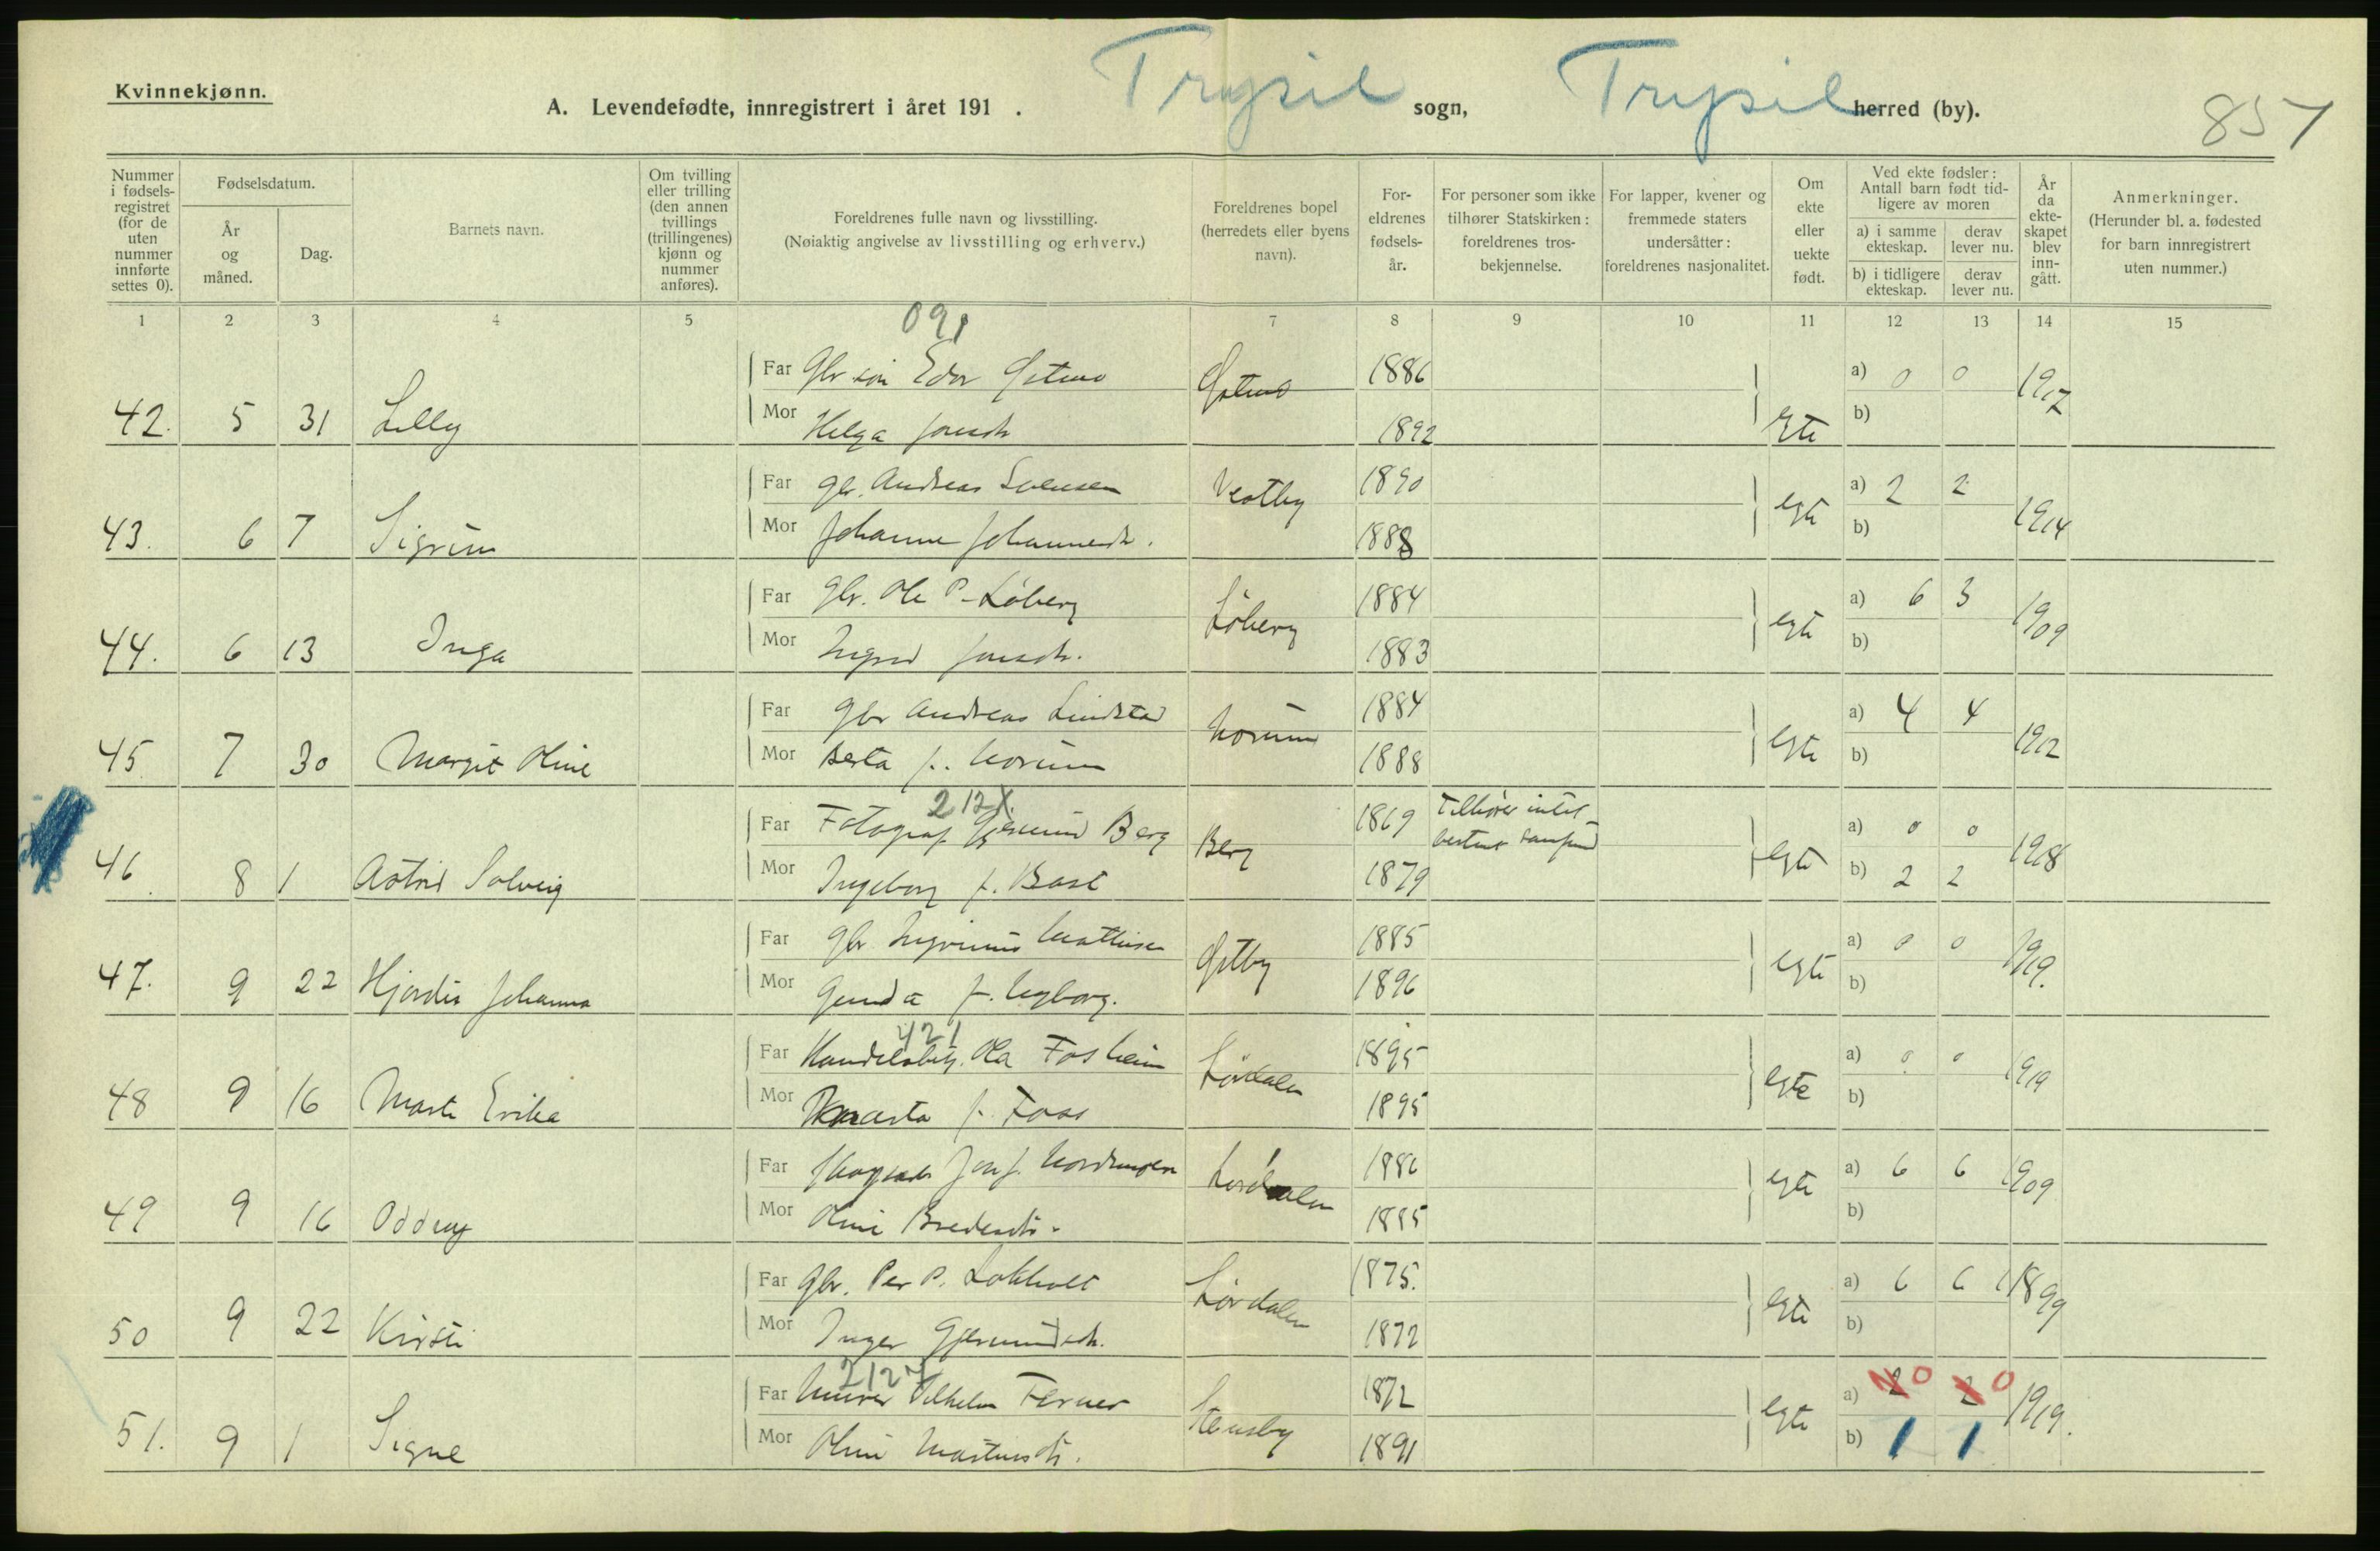 Kvinnekjønn.
A. Levendefødte, innregistrert i året 191 . Trysil sogn, Trysil herred (by). 857
Nummer i fødsels-registret (for de uten nummer innførte settes 0).
Fødselsdatum.
År og måned.
Dag.
Barnets navn.
Om tvilling eller trilling (den annen tvillings (trillingenes) kjønn og nummer anføres).
Foreldrenes fulle navn og livsstilling.
(Nøiaktig angivelse av livsstilling og erhverv.)
Foreldrenes bopel (herredets eller byens navn).
For-eldrenes fødsels-år.
For personer som ikke tilhører Statskirken: foreldrenes tros-bekjennelse.
For lapper, kvener og fremmede staters undersåtter: foreldrenes nasjonalitet.
Om ekte eller uekte født.
Ved ekte fødsler: Antall barn født tid-ligere av moren
a) i samme ekteskap.
derav lever nu.
b) i tidligere ekteskap.
derav lever nu.
År da ekte-skapet blev inn-gått.
Anmerkninger.
(Herunder bl. a. fødested for barn innregistrert uten nummer.)
1 2 3 4 5 7 8 9 10 11 12 13 14 15
091
Far Gbr søn Edv 1886 a) 0 0 1917
42. 5 31 Lilly Mor Helga Jonsdt 1892 Egte b)
Far gbr. Andreas Svensen Vestby 1890 egte a) 2 2 1914
43. 6 7 Sigrun Mor Johanne Johannesdt. 1888 b)
Far gbr. Ole P. Løberg Løberg 1884 egte a) 6 3 1909
44. 6 13 Inga Mor Ingrid Jonsdt. 1883 b)
Far gbr Andreas Lindstad Norum 1884 egte a) 4 4 1912
45 7 30 Margit Oline Mor Berta f. Norum 1888 b)
212X
Far Fotograf Gjermund Berg Berg 1869 Tilhører intet bestemt samfund egte a) 0 0 1918
46. 8 1 Astrid Solveig Mor Ingeborg f. Bast 1879 b) 2 2
Far gbr. Mathisen Galby 1885 egte a) 0 0 1919.
47. 9 22 Hjørdis Johanna Mor Gunda f. Nyborg. 1896 b)
421
Far Handelsbetj. Ola Fosheim Lørdalen 1895 egte a) 0 0 1919
48 9 16 Marte Erika Mor Marta f. Foss 1895 b)
Far Jon J. Nordmoen Lørdalen 1886 egte a) 6 6 1909
49 9 16 Oddny Mor Oline Bredesdt. 1885 b)
Far gbr. Per P. Lokholt Lørdalen 1875. egte a) 6 6 1899
50 9 22 Kirsti Mor Inger Gjermundsdt. 1872 b)
212X
Far Murer Vilhelm Ferner Stensby 1872 egte a) 2 0 2 0 1919.
51. 9 1 Signe Mor Oline Martinsdt. 1891 b) 1 1